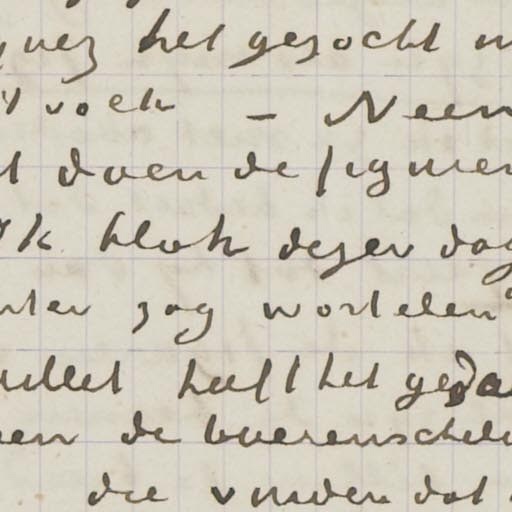 het gezocht
zoek — Neem
doen de figuren
ik blok dezer dag
zag wortelen
millet heeft het geda
een de boerenschild
die vinden dat